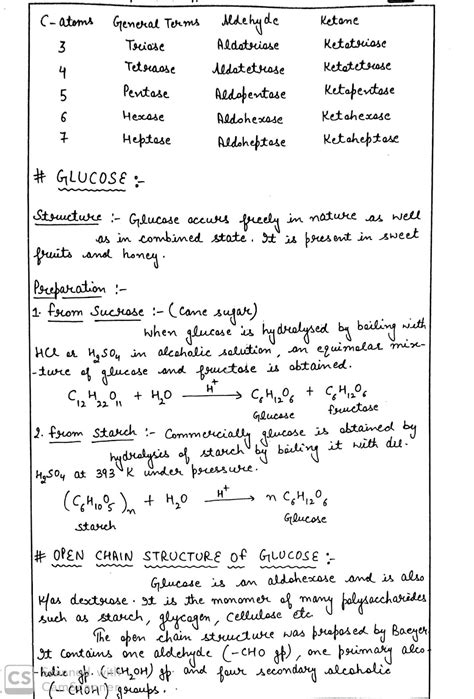 C-atoms General Terms Aldehyde Ketone
3 Triose Aldotriose Ketotriose
4 Tetraose Aldotetrose Ketotetrose
5 Pentose Aldopentose Ketopentose
6 Hexose Aldohexose Ketohexose
7 Heptose Aldoheptose Ketoheptose
# GLUCOSE :-
Structure :- Glucose occurs freely in nature as well
as in combined state. It is present in sweet
fruits and honey.
Preparation :-
1. from Sucrose :- (Cane sugar)
When glucose is hydrolysed by boiling with
HCl or H₂SO₄ in alcoholic solution, an equimolar mix-
-ture of glucose and fructose is obtained.
C₁₂H₂₂O₁₁ + H₂O —H⁺→ C₆H₁₂O₆ + C₆H₁₂O₆
Glucose fructose
2. from Starch :- Commercially glucose is obtained by
hydrolysis of starch by boiling it with dil.
H₂SO₄ at 393 K under pressure.
(C₆H₁₀O₅)n + H₂O —H⁺→ n C₆H₁₂O₆
starch Glucose
# OPEN CHAIN STRUCTURE OF GLUCOSE :-
Glucose is an aldohexose and is also
K/as dextrose. It is the monomer of many polysaccharides
such as starch, glycogen, Cellulose etc
The open chain structure was proposed by Baeyer
It contains one aldehyde (-CHO gp), one primary alco
-holic gp. (-CH₂OH) gp and four secondary alcoholic
(-CHOH) groups.
CS